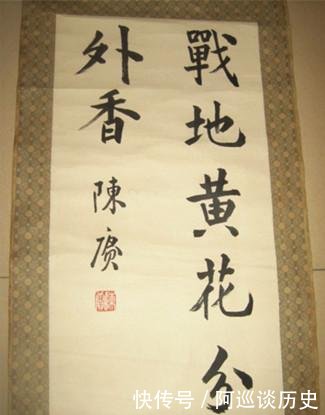 戰地黄花分
外香
陳赓
快传号 / 阿巡谈历史